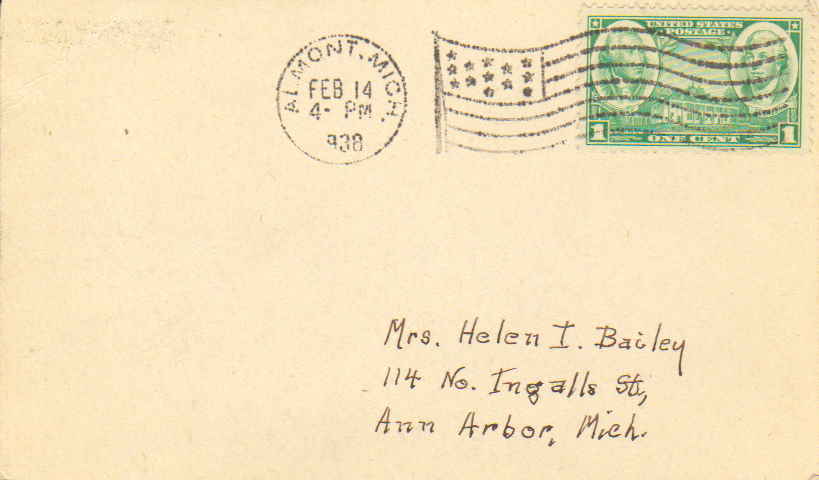 ALMONT, MICH.
FEB 14
4- PM
1938
UNITED STATES
POSTAGE
1 ONE CENT 1
Mrs. Helen I. Bailey
114 No. Ingalls St,
Ann Arbor, Mich.